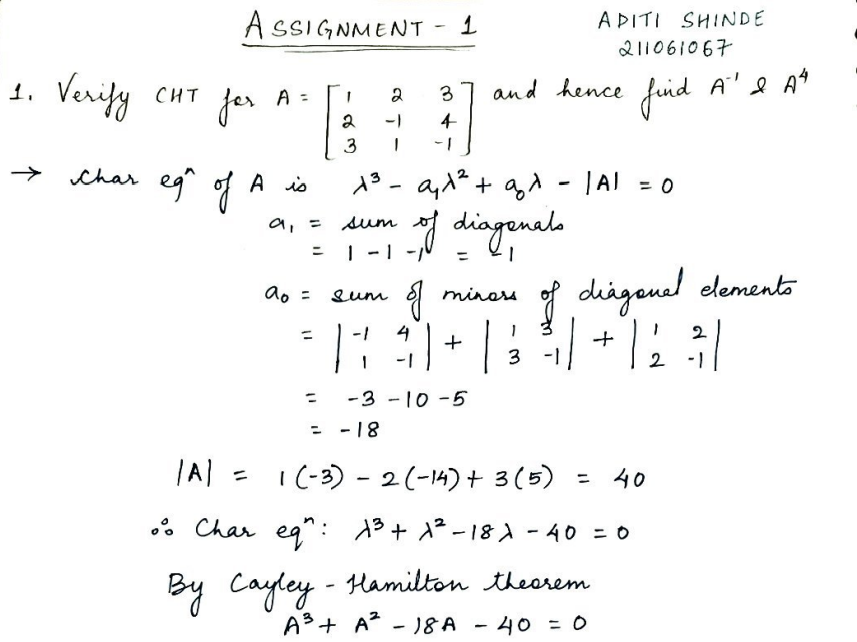 ASSIGNMENT - 1
ADITI SHINDE
211061067
1. Verify CHT for A = [1 2 3; 2 -1 4; 3 1 -1] and hence find A⁻¹ & A⁴
→ Char eqⁿ of A is λ³ - a₁λ² + a₀λ - |A| = 0
a₁ = sum of diagonals
= 1 - 1 - 1 = -1
a₀ = sum of minors of diagonal elements
= |-1 4; 1 -1| + |1 3; 3 -1| + |1 2; 2 -1|
= -3 - 10 - 5
= -18
|A| = 1(-3) - 2(-14) + 3(5) = 40
∴ Char eqⁿ: λ³ + λ² - 18λ - 40 = 0
By Cayley - Hamilton theorem
A³ + A² - 18A - 40 = 0